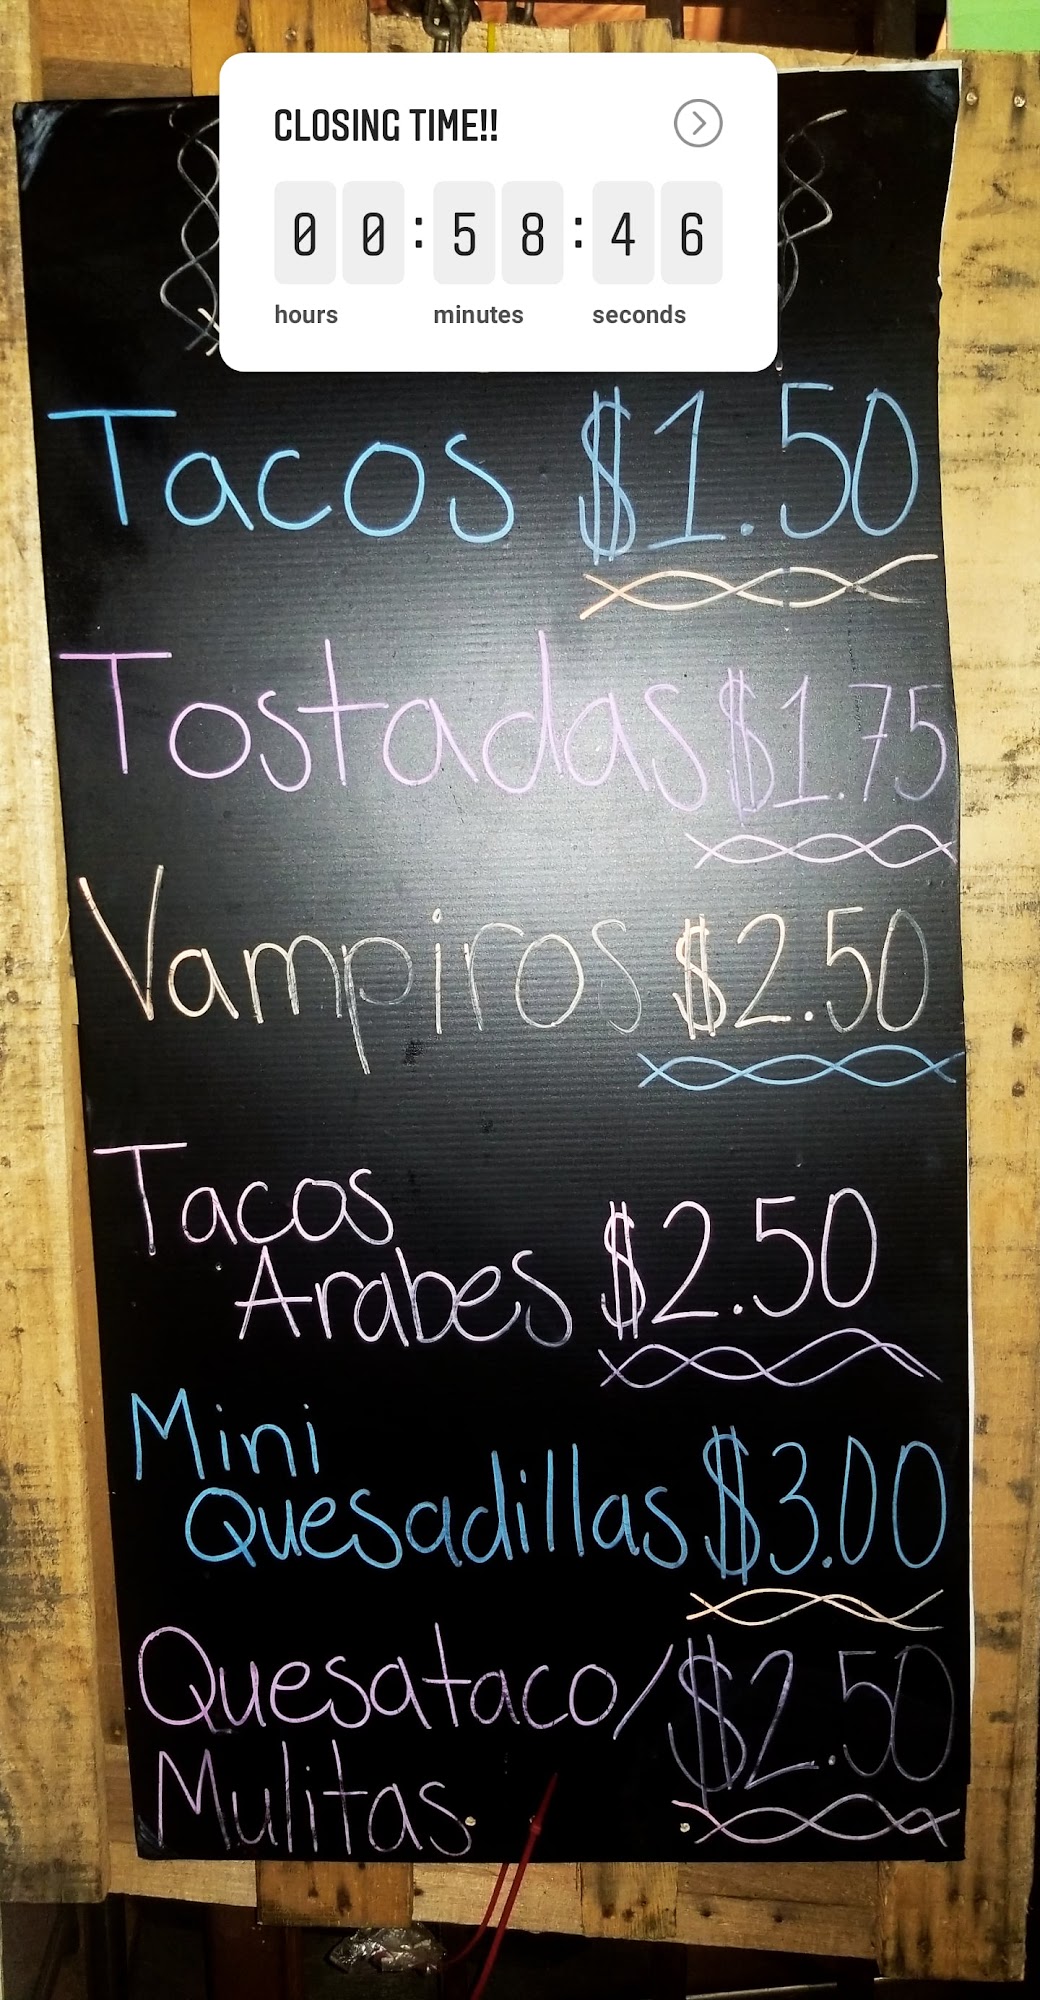 CLOSING TIME!!
00:58:46
hours minutes seconds
Tacos $1.50
Tostadas $1.75
Vampiros $2.50
Tacos
Arabes $2.50
Mini
Quesadillas $3.00
Quesataco/ $2.50
Mulitas